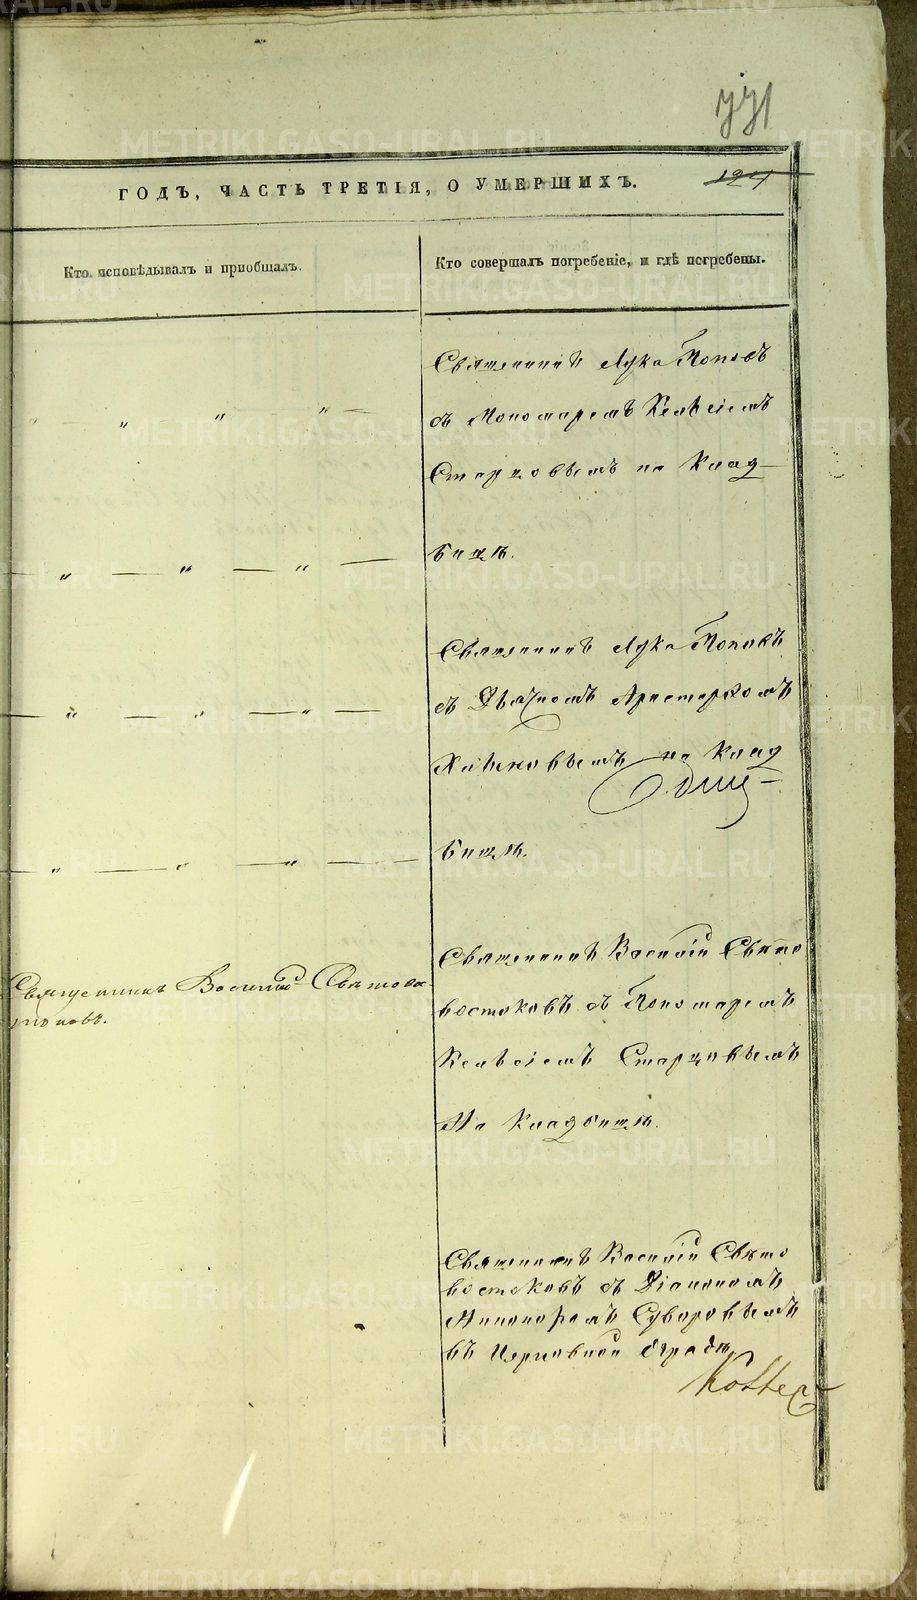 771
124
ГОДЪ, ЧАСТЬ ТРЕТІЯ, О УМЕРШИХЪ.
Кто исповѣдывалъ и пріобщалъ.
Кто совершалъ погребеніе, и гдѣ погребены.
Священникъ Лука Поповъ
съ Пономаремъ
Старцовымъ на Клад-
бищѣ.
Священникъ Лука Поповъ
съ Дьячкомъ Аристархомъ
на Клад
бищѣ.
Священникъ Василій Святово
стоковъ.
Священникъ Василій Свято
востоковъ съ Пономаремъ
Старцовымъ
На Кладбищѣ.
Священникъ Василій Свято
востоковъ съ Діакономъ
Никаноромъ Суворовымъ
въ Церковной оградѣ.
METRIKI.GASO-URAL.RU